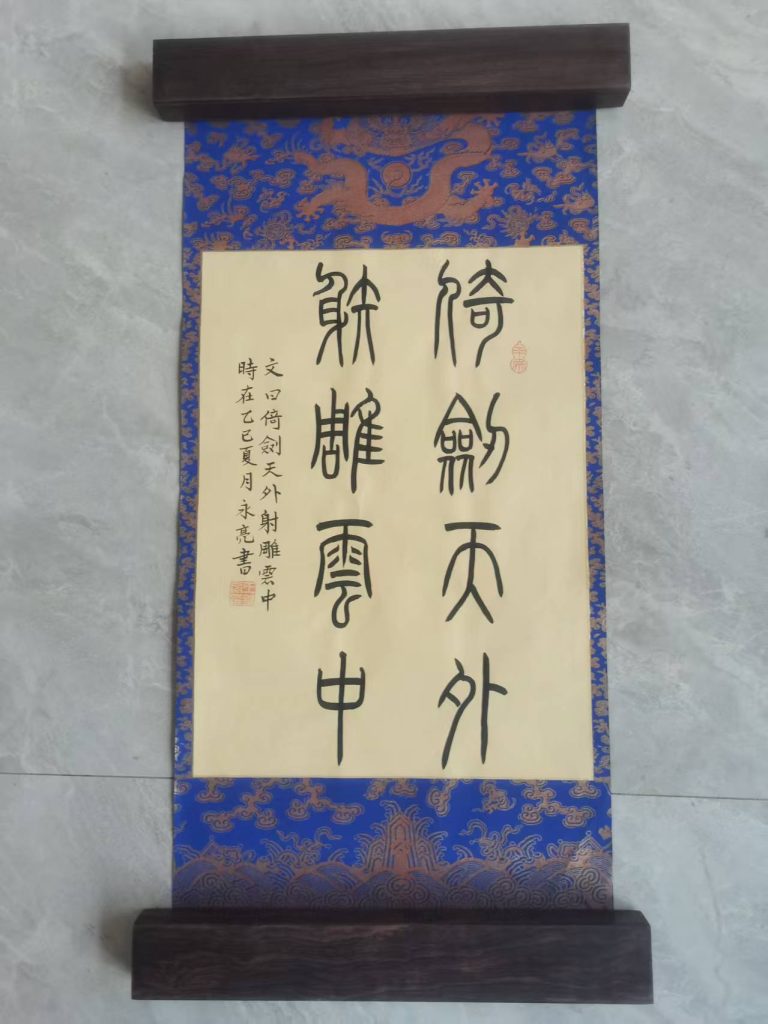 倚劍天外
射雕雲中
文曰倚劍天外射雕雲中
時在乙巳夏月永亮書